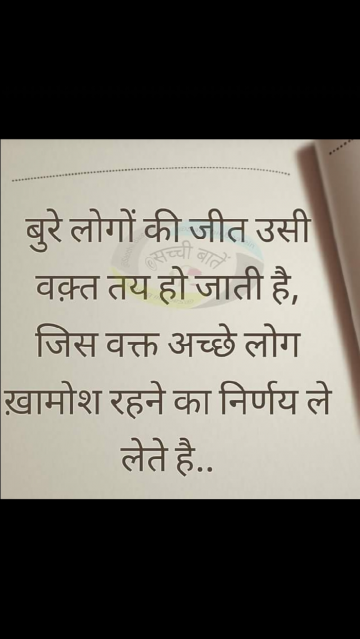 बुरे लोगों की जीत उसी
सच्ची बातें
वक़्त तय हो जाती है,
जिस वक्त अच्छे लोग
ख़ामोश रहने का निर्णय ले
लेते है..